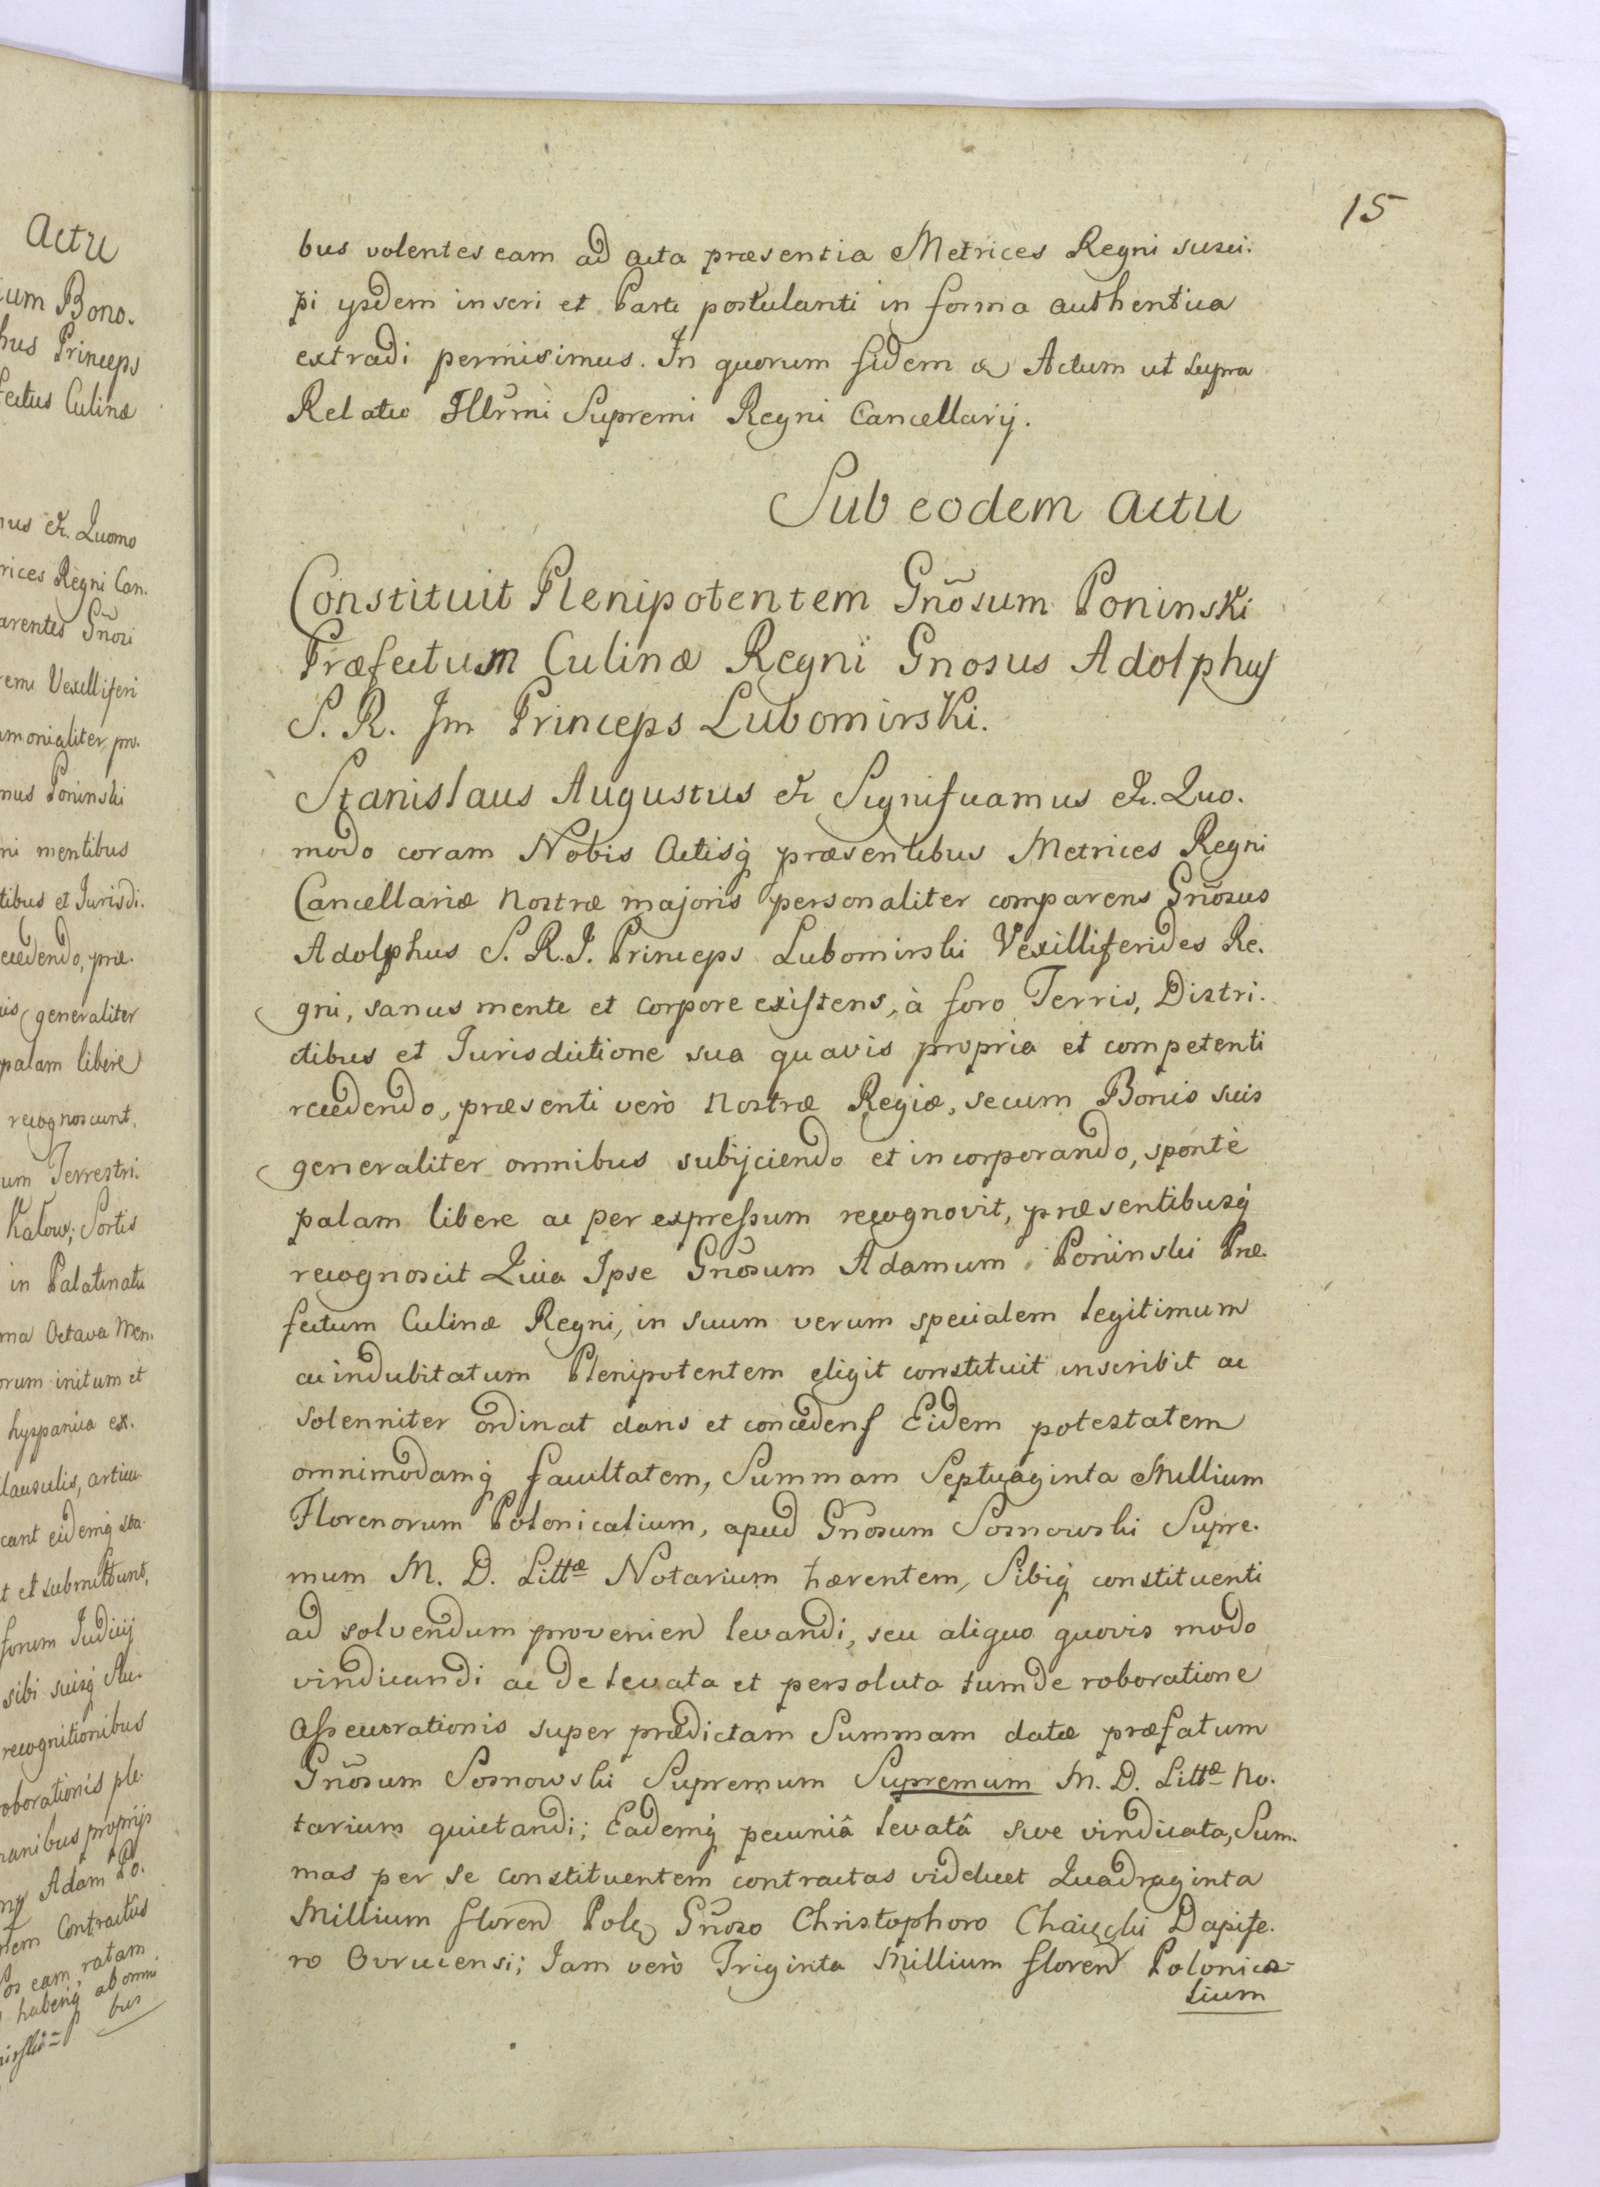 Actu
um Bono.
hus Princeps
fectus Culinæ
us &. Quomo
rices Regni Can.
arentes Gñosi
Vexilliferi
monialiter pro.
mus Poninski
ni mentibus
tibus et Jurisdi.
cedendo, præ.
generaliter
palam libere
recognoscunt,
um Terrestri.
Sortis
in Palatinatu
ma Octava Men.
orum initum et
ex.
lausulis, articu
cant eidemq̃ sta
t et submittunt,
forum Judicij
sibi suisq̃
recognitionibus
roborationis ple.
manibus proprijs
Adam Po.
Contractus
eam ratam
habenq̃ ab omni
bus
15
bus volentes eam ad acta præsentia Metrices Regni susci.
pi ysdem inseri et Parti postulanti in forma authentica
extradi permisimus. In quorum fidem & Actum ut supra
Relatio Illr̃mi Supremi Regni Cancellarij.
Sub eodem actu
Constituit Plenipotentem Gñosum Poninski
Præfectum Culinæ Regni Gnosus Adolphus
S. R. Im Princeps Lubomirski.
Stanislaus Augustus &. Significamus &. Quo.
modo coram Nobis Actisq̃ præsentibus Metrices Regni
Cancellariæ nostræ majoris personaliter comparens Gñosus
Adolphus S. R. J. Princeps Lubomirski Vexilliferides Re.
gni, sanus mente et corpore existens, à foro Terris, Distri.
ctibus et Jurisdictione sua quavis propria et competenti
recedendo, præsenti verò nostræ Regiæ, secum Bonis suis
generaliter omnibus subijciendo et incorporando, spontè
palam libere ac per expressum recognovit, præsentibusq̃
recognoscit Quia Ipse Gñosum Adamum Poninski Præ.
fectum Culinæ Regni, in suum verum specialem legitimum
ac indubitatum Plenipotentem eligit constituit inscribit ac
solenniter ordinat dans et concedens Eidem potestatem
omnimodamq̃ facultatem, Summam Septuaginta Millium
Florenorum Polonicalium, apud Gñosum Sosnowski Supre.
mum M. D. Littæ Notarium hærentem, Sibiq̃ constituenti
ad solvendum provenien levandi, seu aliquo quovis modo
vindicandi ac de levata et persoluta tum de roboratione
Assecurationis super prædictam Summam datæ præfatum
Gñosum Sosnowski Supremum Supremum M. D. Littæ No.
tarium quietandi; Eademq̃ pecuniâ levatâ sive vindicata, Sum.
mas per se constituentem contractas videlicet Quadraginta
Millium floren Pol Gñoso Christophoro Dapife.
ro Ovrucensi; Jam verò Triginta Millium floren Polonica-
lium